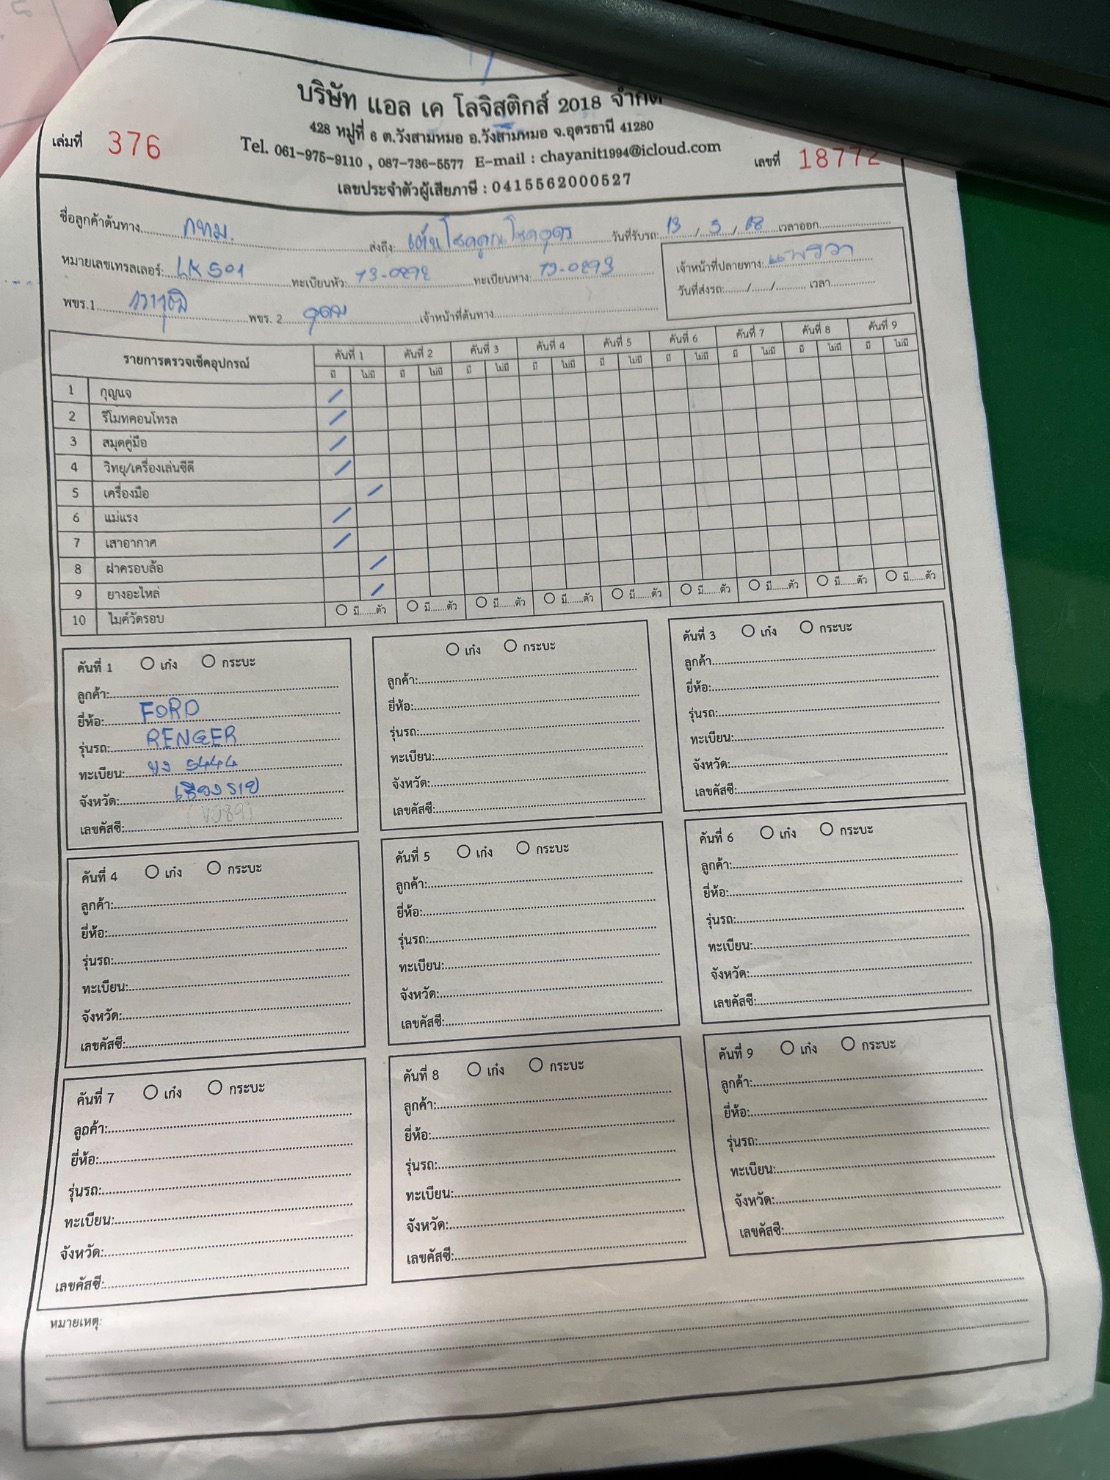 บริษัท แอล เค โลจิสติกส์ 2018 จำกัด
428 หมู่ที่ 6 ต.วังสามหมอ อ.วังสามหมอ จ.อุดรธานี 41280
Tel. 061-975-9110 , 087-736-5577 E-mail : chayanit1994@icloud.com
เลขประจำตัวผู้เสียภาษี : 0415562000527
เล่มที่ 376
เลขที่ 18772
ชื่อลูกค้าต้นทาง กทม. ส่งถึง: วันที่รับรถ: 13 / 5 / 68 เวลาออก
หมายเลขเทรลเลอร์: LK501 ทะเบียนหัว: 73-0292 ทะเบียนหาง: 73-0293
พขร.1 พขร. 2 อุดม เจ้าหน้าที่ต้นทาง
เจ้าหน้าที่ปลายทาง: แพรวา
วันที่ส่งรถ: / / เวลา
รายการตรวจเช็คอุปกรณ์ คันที่ 1 คันที่ 2 คันที่ 3 คันที่ 4 คันที่ 5 คันที่ 6 คันที่ 7 คันที่ 8 คันที่ 9
มี ไม่มี มี ไม่มี มี ไม่มี มี ไม่มี มี ไม่มี มี ไม่มี มี ไม่มี มี ไม่มี มี ไม่มี
1 กุญแจ /
2 รีโมทคอนโทรล /
3 สมุดคู่มือ /
4 วิทยุ/เครื่องเล่นซีดี /
5 เครื่องมือ /
6 แม่แรง /
7 เสาอากาศ /
8 ฝาครอบล้อ /
9 ยางอะไหล่ /
10 ไมค์วัดรอบ มี......ตัว มี......ตัว มี......ตัว มี......ตัว มี......ตัว มี......ตัว มี......ตัว มี......ตัว มี......ตัว
คันที่ 1 เก๋ง กระบะ
ลูกค้า:
ยี่ห้อ: FORD
รุ่นรถ: RENGER
ทะเบียน: 5444
จังหวัด: เชียงราย
เลขคัสซี:
เก๋ง กระบะ
ลูกค้า:
ยี่ห้อ:
รุ่นรถ:
ทะเบียน:
จังหวัด:
เลขคัสซี:
คันที่ 3 เก๋ง กระบะ
ลูกค้า
ยี่ห้อ:
รุ่นรถ:
ทะเบียน:
จังหวัด:
เลขคัสซี:
คันที่ 4 เก๋ง กระบะ
ลูกค้า:
ยี่ห้อ:
รุ่นรถ:
ทะเบียน:
จังหวัด:
เลขคัสซี:
คันที่ 5 เก๋ง กระบะ
ลูกค้า:
ยี่ห้อ:
รุ่นรถ:
ทะเบียน:
จังหวัด:
เลขคัสซี:
คันที่ 6 เก๋ง กระบะ
ลูกค้า:
ยี่ห้อ:
รุ่นรถ:
ทะเบียน:
จังหวัด:
เลขคัสซี:
คันที่ 7 เก๋ง กระบะ
ลูกค้า:
ยี่ห้อ:
รุ่นรถ:
ทะเบียน:
จังหวัด:
เลขคัสซี:
คันที่ 8 เก๋ง กระบะ
ลูกค้า:
ยี่ห้อ:
รุ่นรถ:
ทะเบียน:
จังหวัด:
เลขคัสซี:
คันที่ 9 เก๋ง กระบะ
ลูกค้า:
ยี่ห้อ:
รุ่นรถ:
ทะเบียน:
จังหวัด:
เลขคัสซี:
หมายเหตุ: